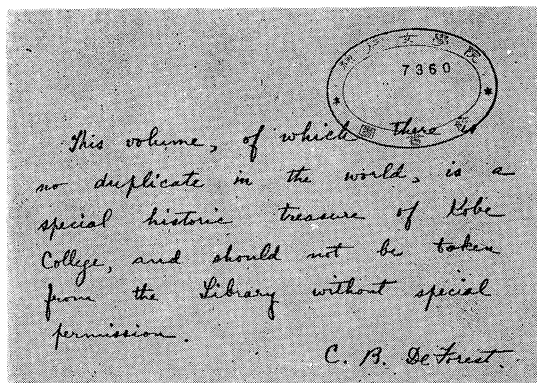 神戸女學院
7360
圖書
This volume, of which there is
no duplicate in the world, is a
special historic treasure of Kobe
College, and should not be taken
from the Library without special
permission.
C. B. DeForest.